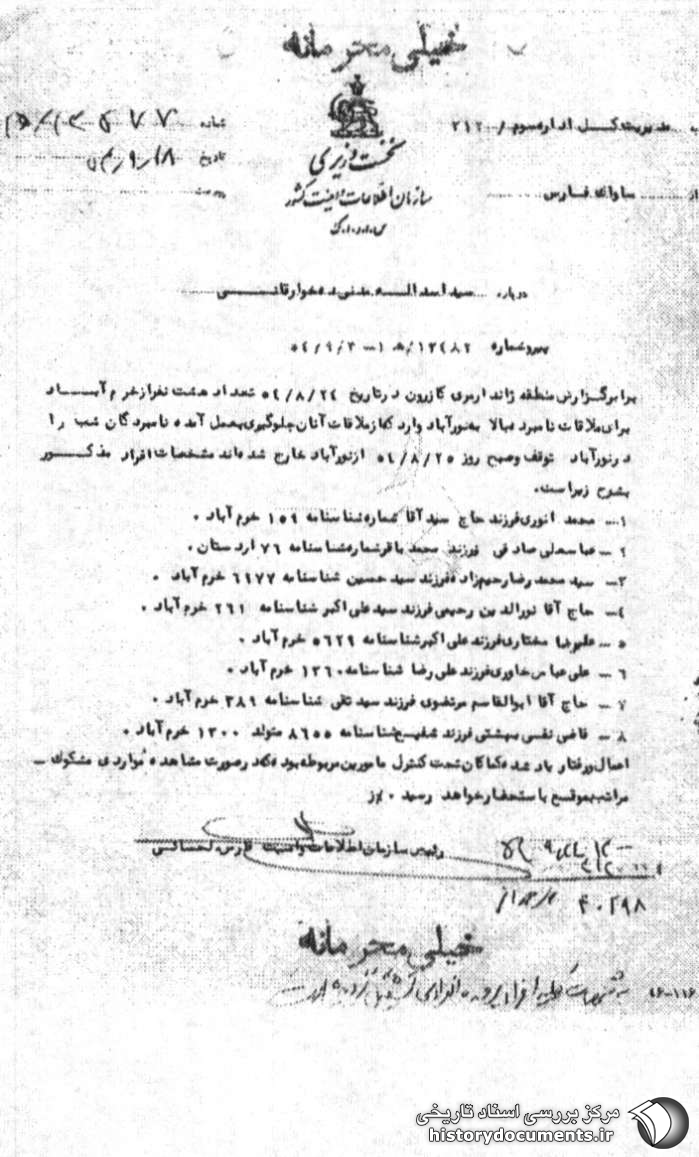 خیلی محرمانه
مدیریت کل اداره سوم / ۲۱۲
شماره
نخست وزیری
تاریخ
از ساواک فارس
سازمان اطلاعات و امنیت کشور
س.ا.و.ا.ک
درباره سید اسداله مدنی دهخوارقانی
پیرو شماره ۱۲۴۸۲/ه ۱ – ۵۴/۹/۳
برابر گزارش منطقه ژاندارمری کازرون در تاریخ ۵۴/۸/۲۴ تعداد هشت نفر از خرم آباد
برای ملاقات نامبرده بالا به نورآباد وارد که از ملاقات آنان جلوگیری بعمل آمده نامبردگان شب را
در نورآباد توقف و صبح روز ۵۴/۸/۲۵ از نورآباد خارج شده اند مشخصات افراد مذکور
بشرح زیر است.
۱– محمد انوری فرزند حاج سید آقا شماره شناسنامه ۱۵۹ خرم آباد .
۲– عباسعلی صادقی فرزند محمد باقر شماره شناسنامه ۷۶ اردستان .
۳– سید محمد رضا رحیم زاده فرزند سید حسین شناسنامه ۶۱۷۷ خرم آباد .
۴– حاج آقا نورالدین رحیمی فرزند سید علی اکبر شناسنامه ۲۶۱ خرم آباد .
۵– علیرضا مختاری فرزند علی اکبر شناسنامه ۵۶۲۹ خرم آباد .
۶– علی عباس خاوری فرزند علی رضا شناسنامه ۱۳۶۰ خرم آباد .
۷– حاج آقا ابوالقاسم مرتضوی فرزند سید تقی شناسنامه ۳۸۹ خرم آباد .
۸– قاضی نفسی بهشتی فرزند شفیع شناسنامه ۸۶۵۵ متولد ۱۳۰۰ خرم آباد .
اعمال و رفتار یاد شده کماکان تحت کنترل مامورین مربوطه بوده که در صورت مشاهده مواردی مشکوک –
مراتب بموقع باستحضار خواهد رسید
رئیس سازمان اطلاعات و امنیت فارس
۴۰۲۹۸
خیلی محرمانه
۱۱۶-۱۶
مرکز بررسی اسناد تاریخی
historydocuments.ir